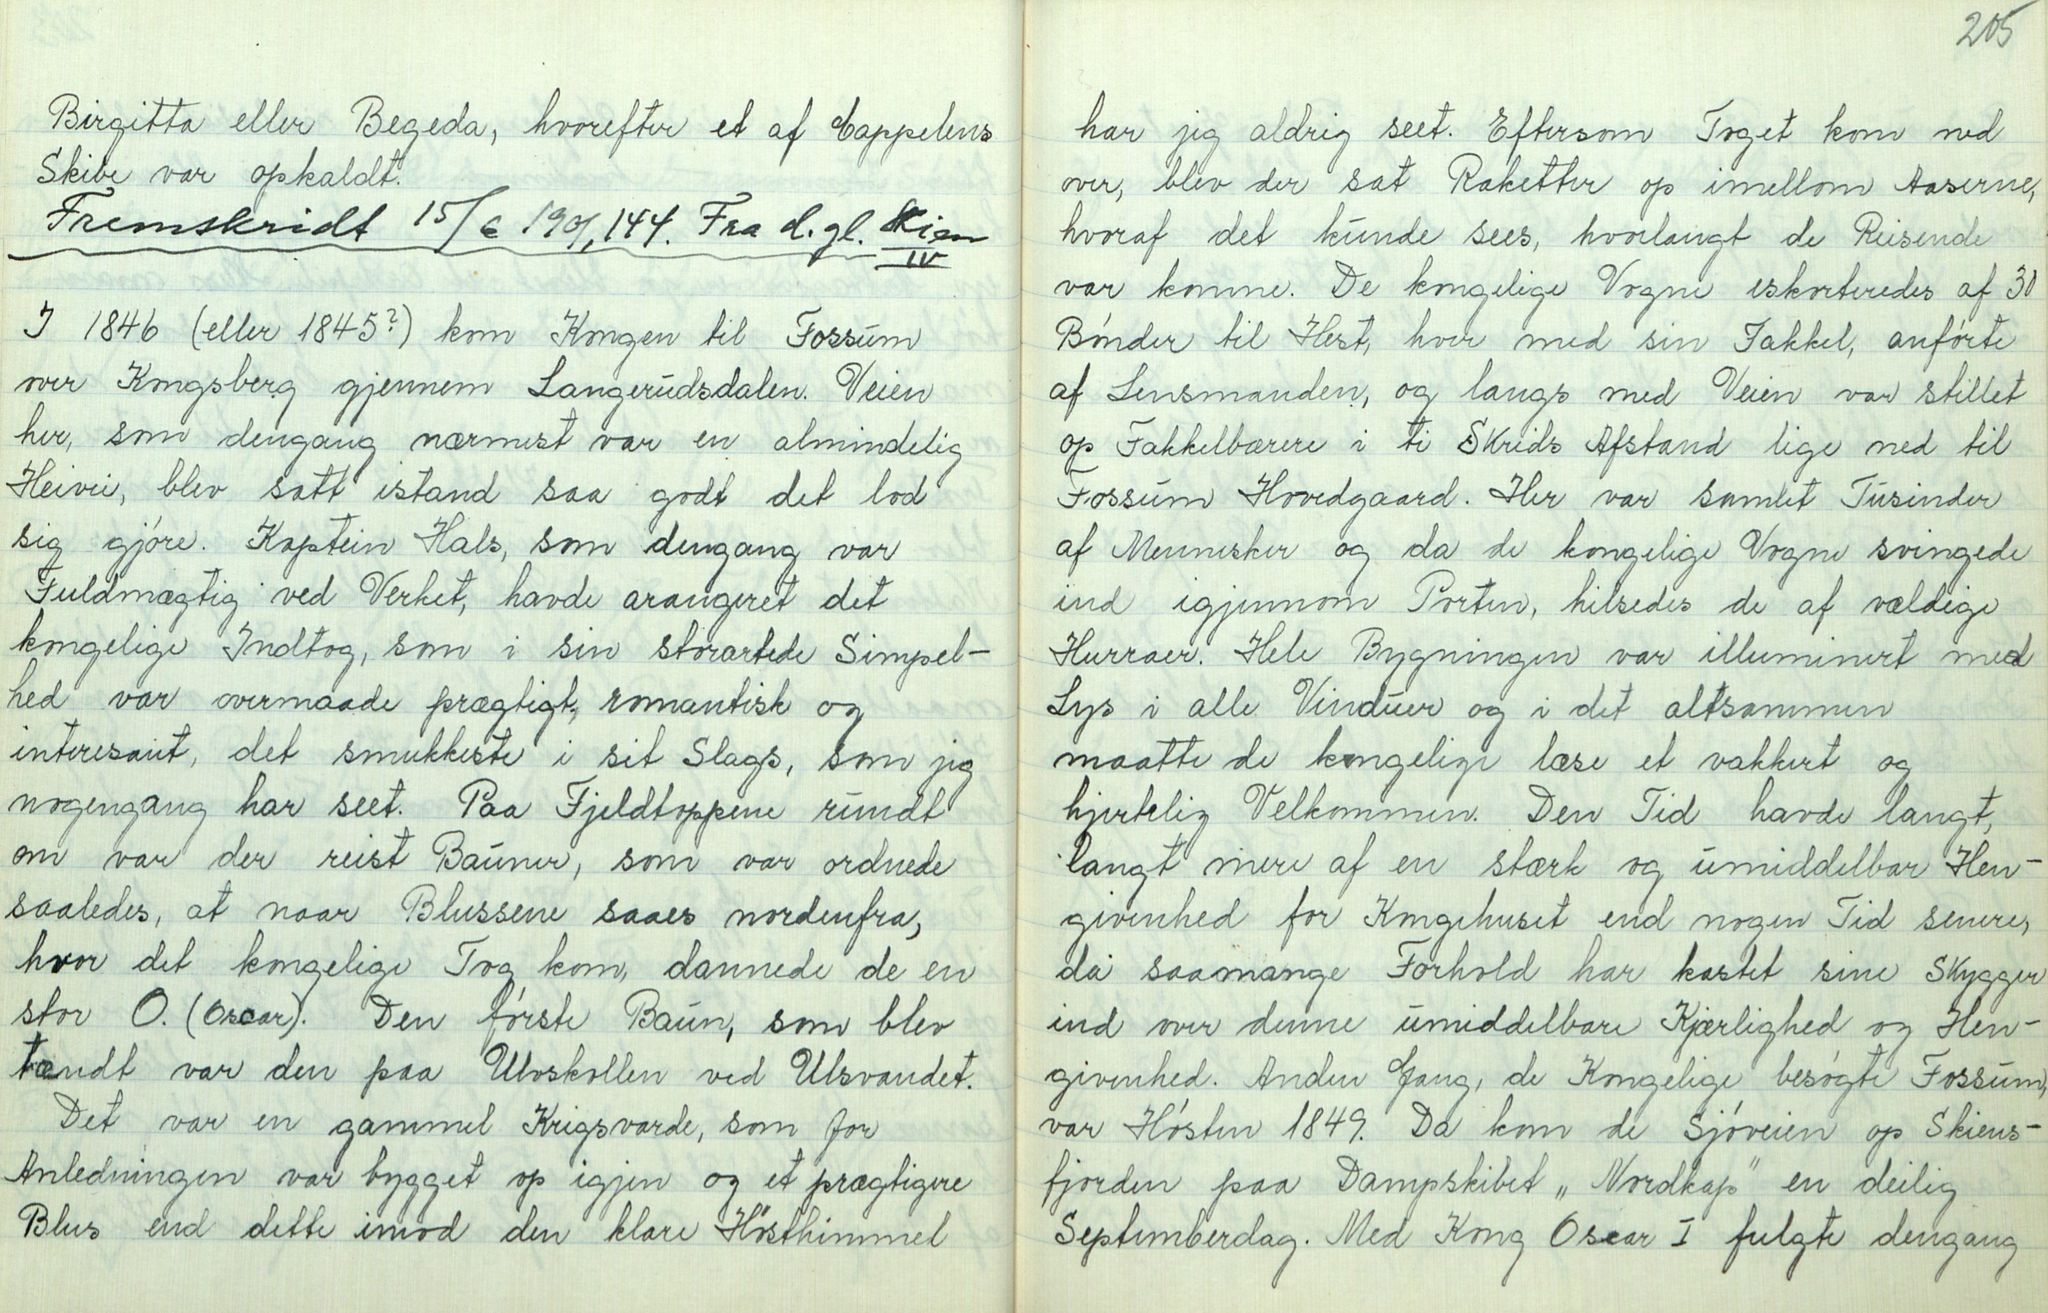 Birgitta eller Begeda, hvorefter et af Cappelens
Skibe var opkaldt.
Fremskridt 15/6 1901, 144. Fra d. gl. Skien
IV
I 1846 (eller 1845?) kom Kongen til Fossum
over Kongsberg gjennem Langerudsdalen. Veien
her, som dengang nærmest var en almindelig
Heivei, blev satt istand saa godt det lod
sig gjøre. Kaptein Hals, som dengang var
Fuldmægtig ved Verket, havde arangeret det
kongelige Indtog, som i sin storartede Simpel-
hed var overmaade prægtigt, romantisk og
interesant, det smukkeste i sit Slags, som jeg
nogengang har seet. Paa Fjeldtoppene rundt
om var der reist Bauner, som var ordnede
saaledes, at naar Blussene saaes nordenfra,
hvor det kongelige Tog kom, dannede de en
stor O. (Oscar). Den første Baun, som blev
tændt var den paa Ulvskollen ved Ulsvandet.
Det var en gammel Krigsvarde, som for
Anledningen var bygget op igjen og et prægtigere
Blus end dette imod den klare Høsthimmel
205
har jeg aldrig seet. Eftersom Toget kom ned
over, blev der sat Raketter op imellom Aaserne,
hvoraf det kunde sees, hvorlangt de Reisende
var komne. De kongelige Vogne eskorteredes af 30
Bønder til Hest, hver med sin Fakkel, anførte
af Lensmanden, og langs med Veien var stillet
op Fakkelbærere i ti Skrids Afstand lige ned til
Fossum Hovedgaard. Her var samlet Tusinder
af Mennesker og da de kongelige Vogne svingede
ind igjennom Porten, hilsedes de af vældige
Hurraer. Hele Bygningen var illuminert med
Lys i alle Vinduer og i det altsammen
maatte de kongelige læse et vakkert og
hjertelig Velkommen. Den Tid havde langt,
langt mere af en stærk og umiddelbar Hen-
givenhed for Kongehuset end nogen Tid senere,
da saamange Forhold har kastet sine Skygger
ind over denne umiddelbare Kjærlighed og Hen-
givenhed. Anden Gang, de Kongelige besøgte Fossum,
var Høsten 1849. Da kom de Sjøveien op Skiens-
fjorden paa Dampskibet „Nordkap" en deilig
Septemberdag. Med Kong Oscar I fulgte dengang